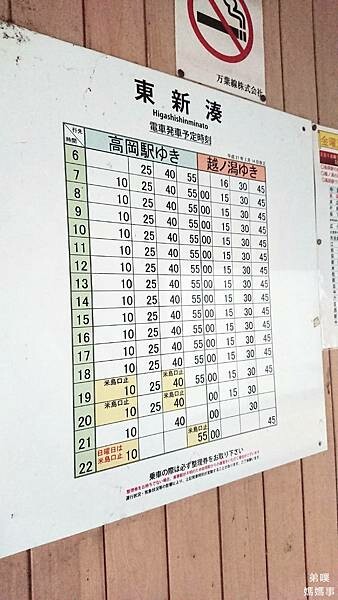 万葉線株式会社
東新湊
Higashishinminato
電車発車予定時刻
行先
時間
高岡駅ゆき
越ノ潟ゆき
6 25 40 55 16 30 45
7 10 25 40 55 00 15 30 45
8 10 25 40 55 00 15 30 45
9 10 25 40 55 00 15 30 45
10 10 25 40 55 00 15 30 45
11 10 25 40 55 00 15 30 45
12 10 25 40 55 00 15 30 45
13 10 25 40 55 00 15 30 45
14 10 25 40 55 00 15 30 45
15 10 25 40 55 00 15 30 45
16 10 25 40 55 00 15 30 45
17 10 25 40 55 00 15 30 45
18 10 25 40 55 00 15 30 45
米島口止 米島口止
19 10 25 40 55 00 15 30 45
米島口止
20 10 25 40 00 15 30
21 10 40 00 30
日曜日は 米島口止
22 米島口止 10 55 00 45
乗車の際は必ず整理券をお取り下さい
弟噗
媽媽事